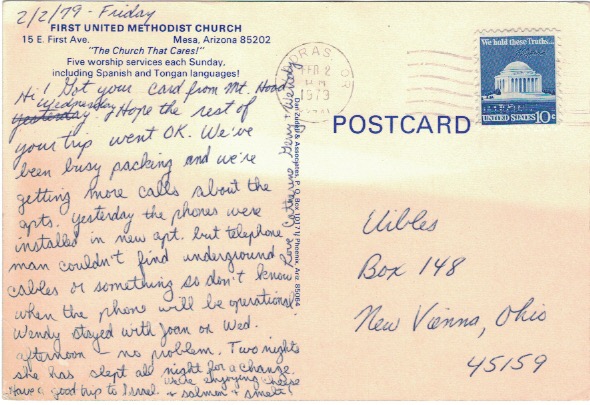 2/2/79 - Friday
FIRST UNITED METHODIST CHURCH
15 E. First Ave. Mesa, Arizona 85202
"The Church That Cares!"
Five worship services each Sunday,
including Spanish and Tongan languages!
Hi! Got your card from Mt. Hood
Wednesday
yesterday. Hope the rest of
your trip went OK. We've
been busy packing and we're
getting more calls about the
apts. Yesterday the phones were
installed in new apt. but telephone
man couldn't find underground
cables or something so don't know
when the phone will be operational
Wendy stayed with Joan on Wed.
afternoon - no problem. Two nights
she has slept all night for a change.
Have a good trip to Israel. We're enjoying cheese
+ salmon + smelt!
Love Catharine Gerry + Wendy
Dan & Associates, P. O. Box Phoenix, Ariz 85064
MADRAS OR
FEB 2
PM
1979
We hold these Truths...
UNITED STATES 10c
POSTCARD
Uibles
Box 148
New Vienna, Ohio
45159